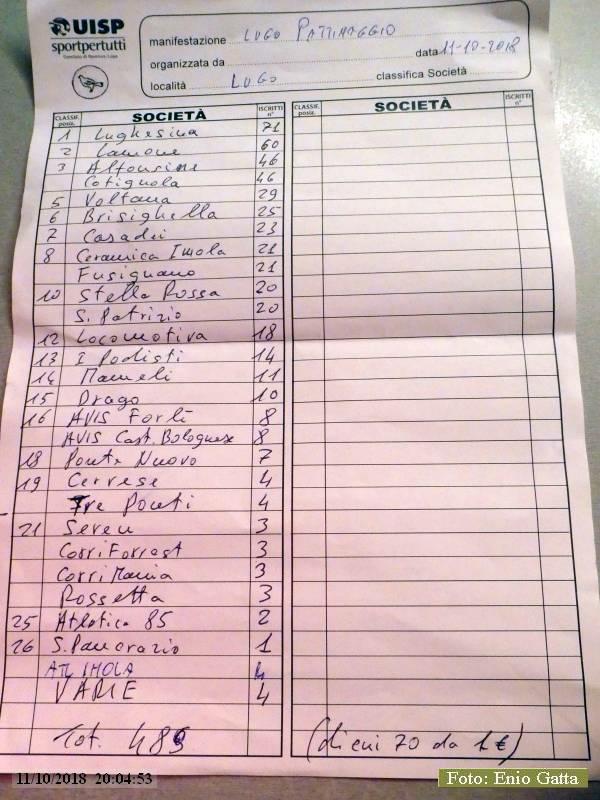 UISP
sportpertutti
manifestazione LUGO PATTINAGGIO
organizzata da
data 11-10-2018
località LUGO
classifica Società
CLASSIF. posiz. SOCIETÀ ISCRITTI n°
CLASSIF. posiz. SOCIETÀ ISCRITTI n°
1 Lughesina 71
2 Lamone 60
3 Alfonsine 46
Cotignola 46
5 Voltana 29
6 Brisighella 25
7 Casadei 23
8 Ceramica Imola 21
Fusignano 21
10 Stella Rossa 20
S. Patrizio 20
12 Locomotiva 18
13 I Podisti 14
14 Mameli 11
15 Drago 10
16 AVIS Forlì 8
AVIS Cast. Bolognese 8
18 Ponte Nuovo 7
19 Cervese 4
Tre Ponti 4
21 Seven 3
CorriForrest 3
CorriMania 3
Rossetta 3
25 Atletica 85 2
26 S. Pancrazio 1
ATL IMOLA
VARIE 4
Tot. 489
(di cui 70 da 1€)
11/10/2018 20:04:53
Foto: Enio Gatta